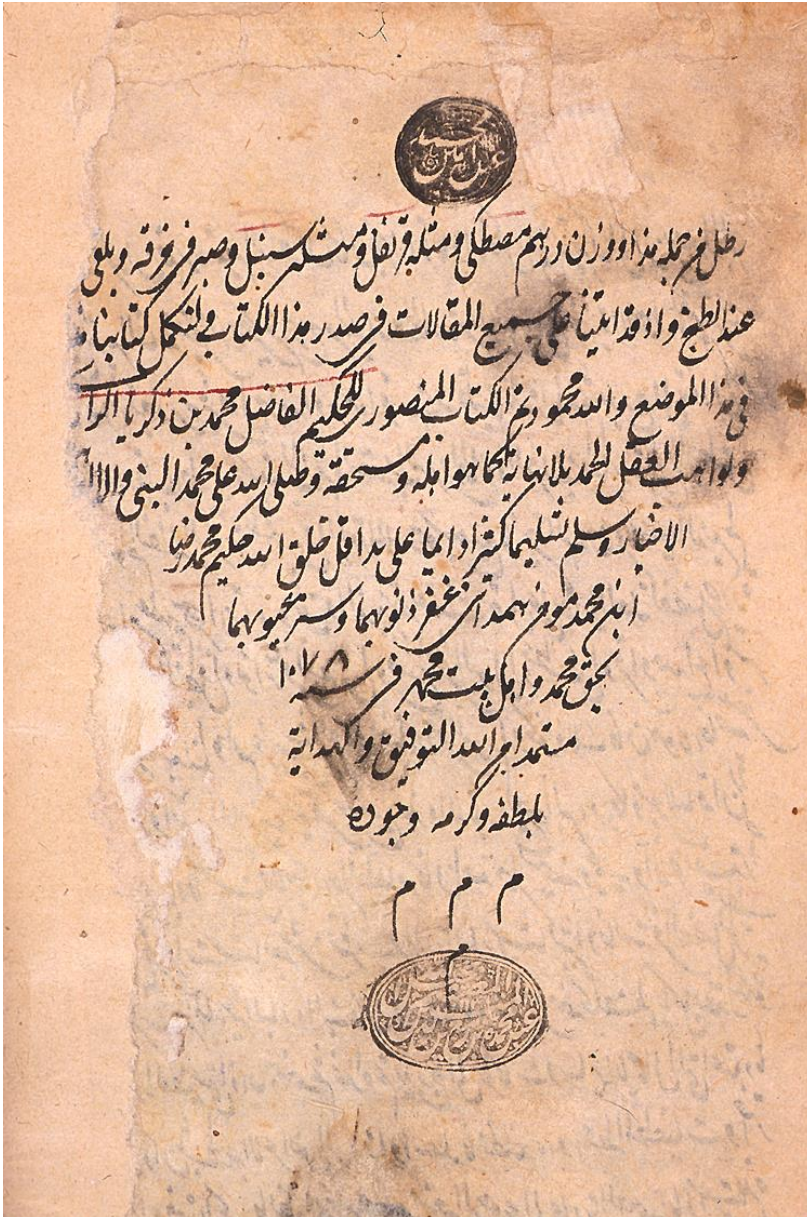 رطل من جملة هذا ووزن درهم مصطكى ومثله قرنفل ومثله سنبل وصير فى خرقة ويلقى
عند الطبخ واذ قد اتينا على جميع المقالات فى صدر هذا الكتاب فلنكمل كتابنا
فى هذا الموضع والله محمود تم الكتاب المنصورى للحكيم الفاضل محمد بن زكريا
ولواهب العقل الحمد بلا نهاية كما هو اهله ومستحقه وصلى الله على محمد النبى واله
الاخيار وسلم تسليما كثيرا دايما على يد اقل خلق الله حكيم محمد رضا
ابن محمد مومن همدانى غفر ذنوبهما وستر عيوبهما
بحق محمد واهل بيت محمد فى سنه ۱۰۷۸
مستمدا من الله التوفيق والهداية
بلطفه وكرمه وجوده
م م م
م